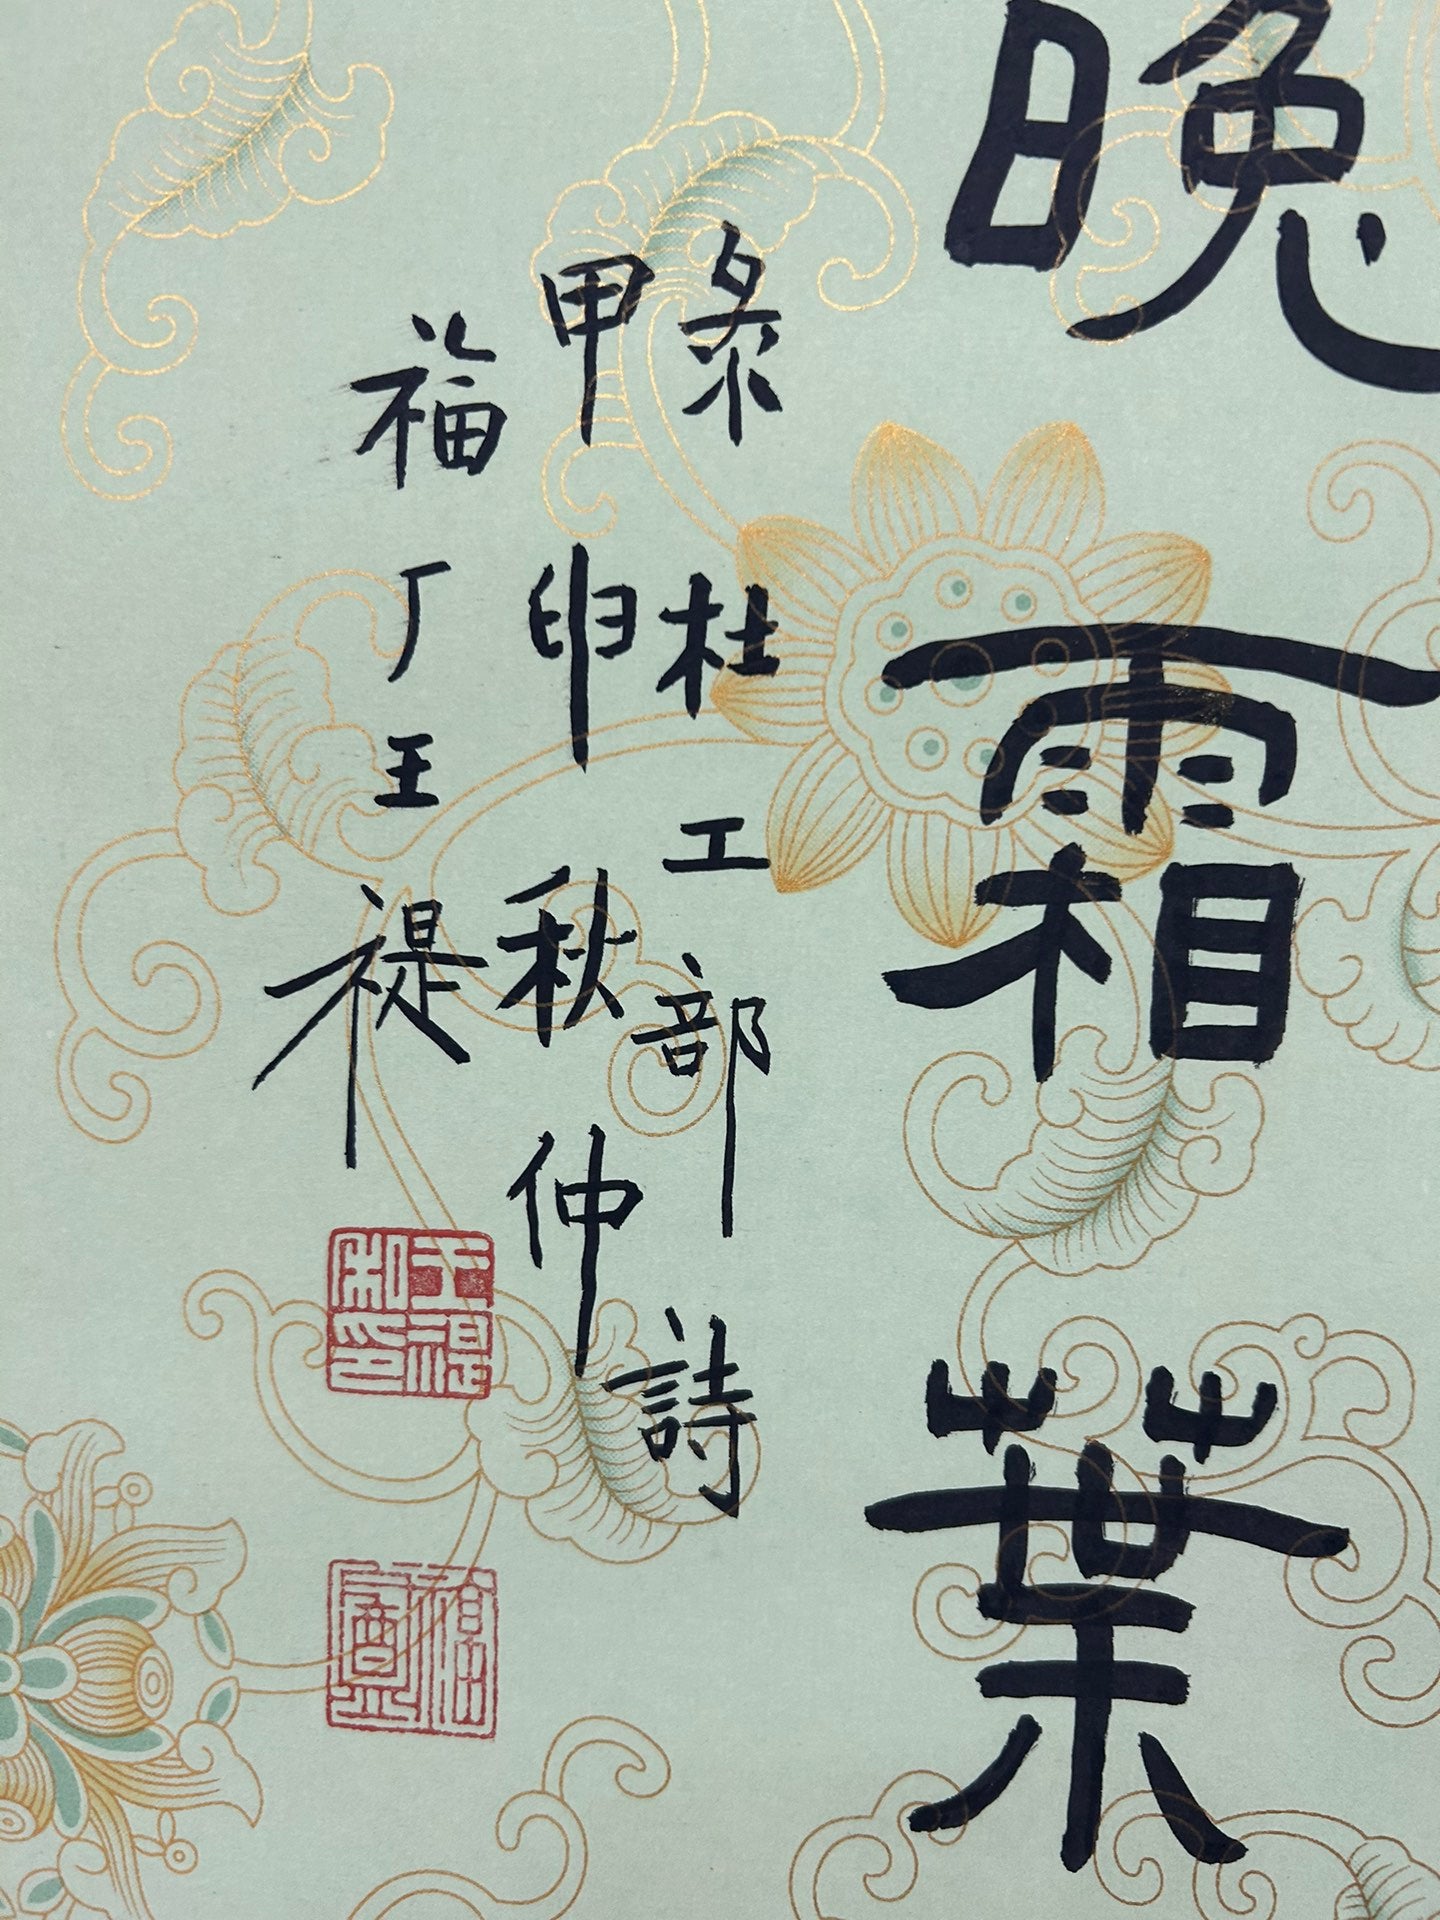 晚霜葉
彔杜工部詩
甲申秋仲
福厂王禔
王禔私印
福盦